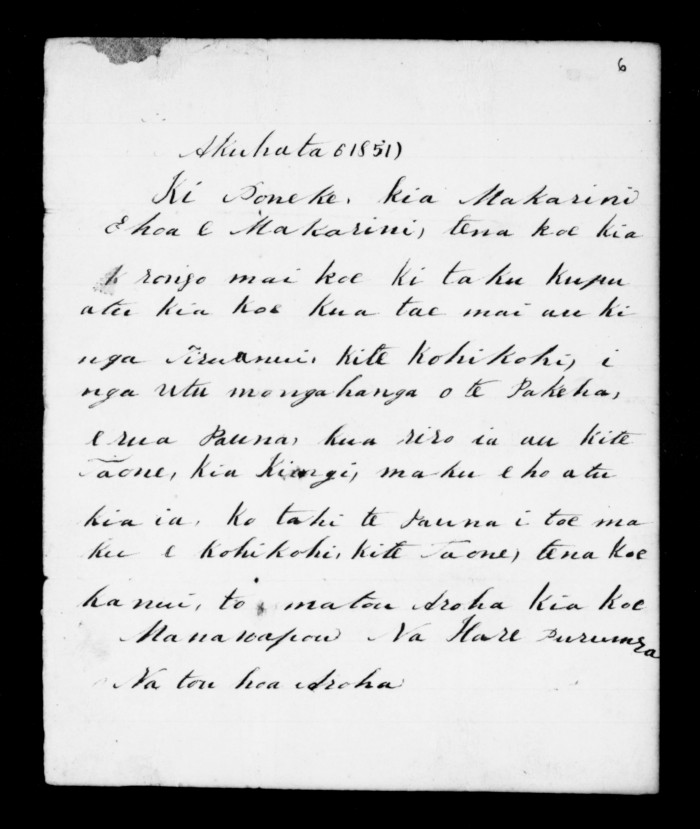 6
Akuhata 6 1851)
Ki Poneke, kia Makarini
E hoa e Makarini, tena koe kia
rongo mai koe ki taku kupu
atu kia koe kua tae mai au ki
nga Tiruanui, kite Kohikohi, i
nga Utu mongahanga o te Pakeha,
e rua Pauna, kua riro ia au kite
Taone, kia Kiingi, maku e ho atu
kia ia, ko tahi te Pauna i toe ma
ku e Kohikohi, kite Taone, tena Koe
ka nui, to matou Aroha Kia koe
Manawapou Na Hare
Na tou hoa Aroha